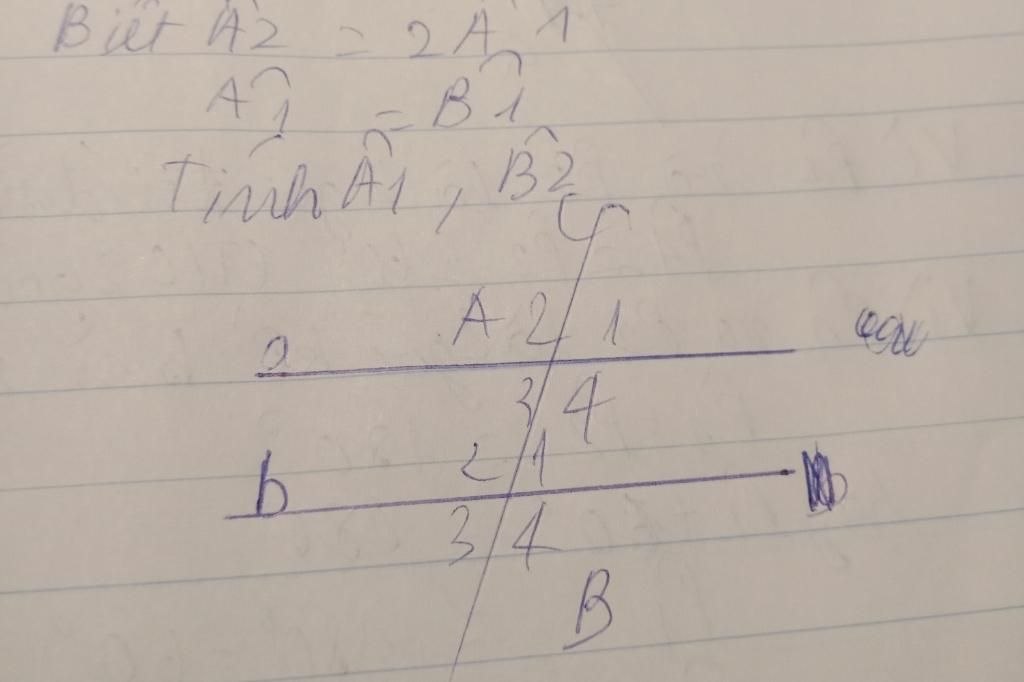 Biết Â2 = 2Â1
Â1 = B̂1
Tính Â1, B̂2
A 2 1
a
3 4
2 1
b b
3 4
B